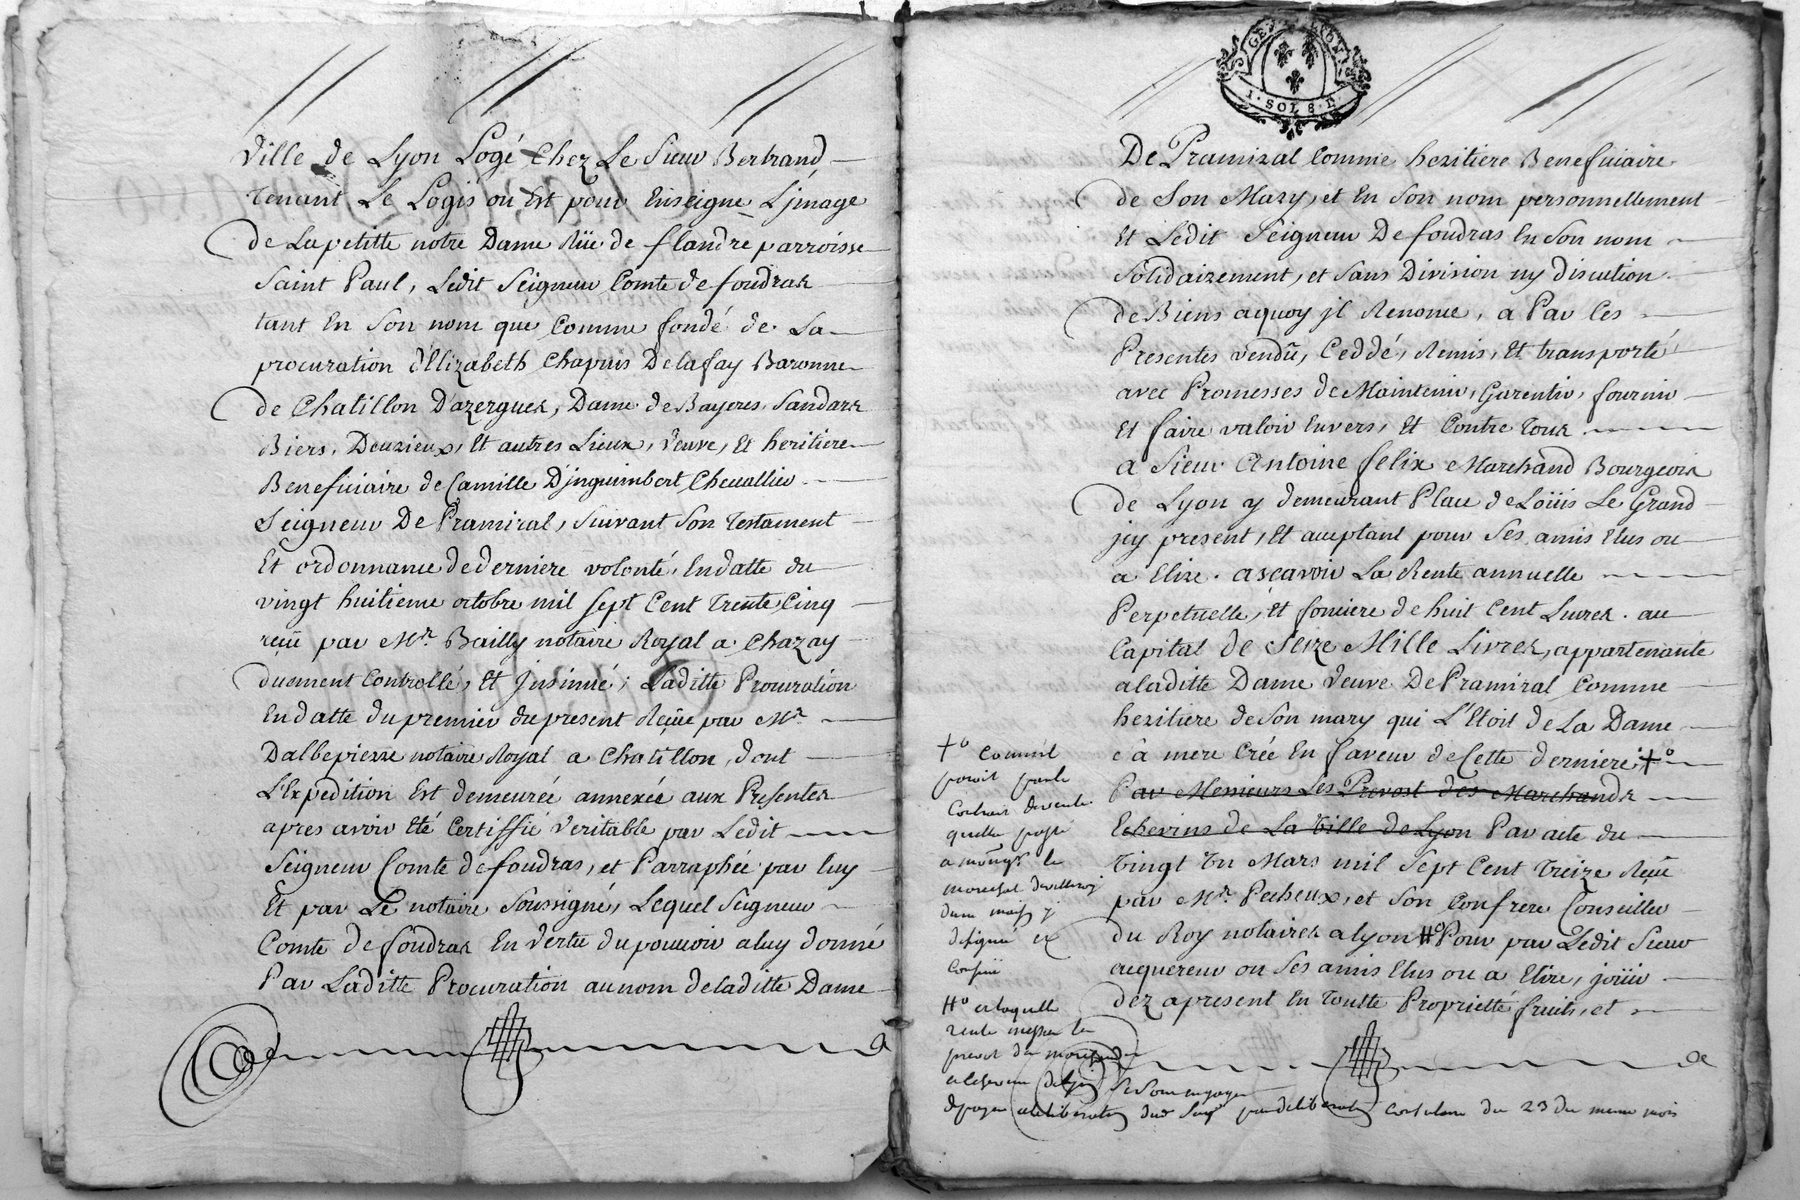 Ville de Lyon Logé Chez Le Sieur Bertrand
tenant Le Logis ou Est pour Enseigne L'jmage
de Lapetitte notre Dame Rüe de flandre parroisse
Saint Paul, Ledit Seigneur Comte de foudras
tant En Son nom que Comme fondé de La
procuration d'Elizabeth Chapuis Delafay Baronne
de Chatillon D'azergues, Dame de Bayeres, Sandars
Biers, Deuzieux, Et autres Lieux, Veuve, Et heritiere
Beneficiaire de Camille D'jnguimbert Chevallier
Seigneur De Pramiral, Suivant Son Testament
Et ordonnance de derniere volonté, Endatte du
vingt huitieme octobre mil Sept Cent Trente Cinq
reçu par Mr. Bailly notaire Royal a Chazay
duement Controllé, Et Jnsinué; Laditte Procuration
Endatte du premier du present Reçüe par Mr.
Dalbepierre notaire Royal a Chatillon, dont
L'Expedition Est demeurée annexée aux Presentes
apres avoir Eté Certiffié Veritable par Ledit
Seigneur Comte de foudras, et Parraphée par luy
Et par Le notaire Soussigné, Lequel Seigneur
Comte de foudras En Vertu du pouvoir a luy donné
Par Laditte Procuration au nom de laditte Dame
GEN LYON
1. SOL 8. D.
De Pramiral Comme heritiere Beneficiaire
de Son Mary, et En Son nom personnellement
Et Ledit Seigneur De foudras En Son nom
Solidairement, et Sans Division ny discution
de Biens aquoy jl Renonce, a Par Ces
Presentes vendû, Ceddé, Remis, Et transporté
avec Promesses de Maintenir, Garentir, fournir
Et faire valoir Envers, Et Contre Tous
a Sieur Antoine felix Marchand Bourgeois
de Lyon y demeurant Place de Loüis Le Grand
jcy present, Et acceptant pour Ses amis Elus ou
a Elire. ascavoir La Rente annuelle
Perpetuelle, Et fonciere de huit Cent Livres. au
Capital de Seize Mille Livres, appartenante
a laditte Dame Veuve De Pramiral Comme
heritiere de Son mary qui L'Etoit de La Dame
Sa mere Crée En faveur de Cette derniere +o
Par Messieurs Les Prevost des Marchands
Echevins de La Ville de Lyon Par acte du
Vingt Un Mars mil Sept Cent Treize Reçu
par Mr. Pecheux, et Son Confrere Conseiller
du Roy notaires a lyon #o Pour par Ledit Sieur
acquereur ou Ses amis Elus ou a Elire, joüir
dez apresent En Toutte Proprietté fruits, et
+o
par le
Contrat de vente
le
marechal de villeroy
#o
rente
prevot des marchands
par deliberation consulaire du 23 du meme mois